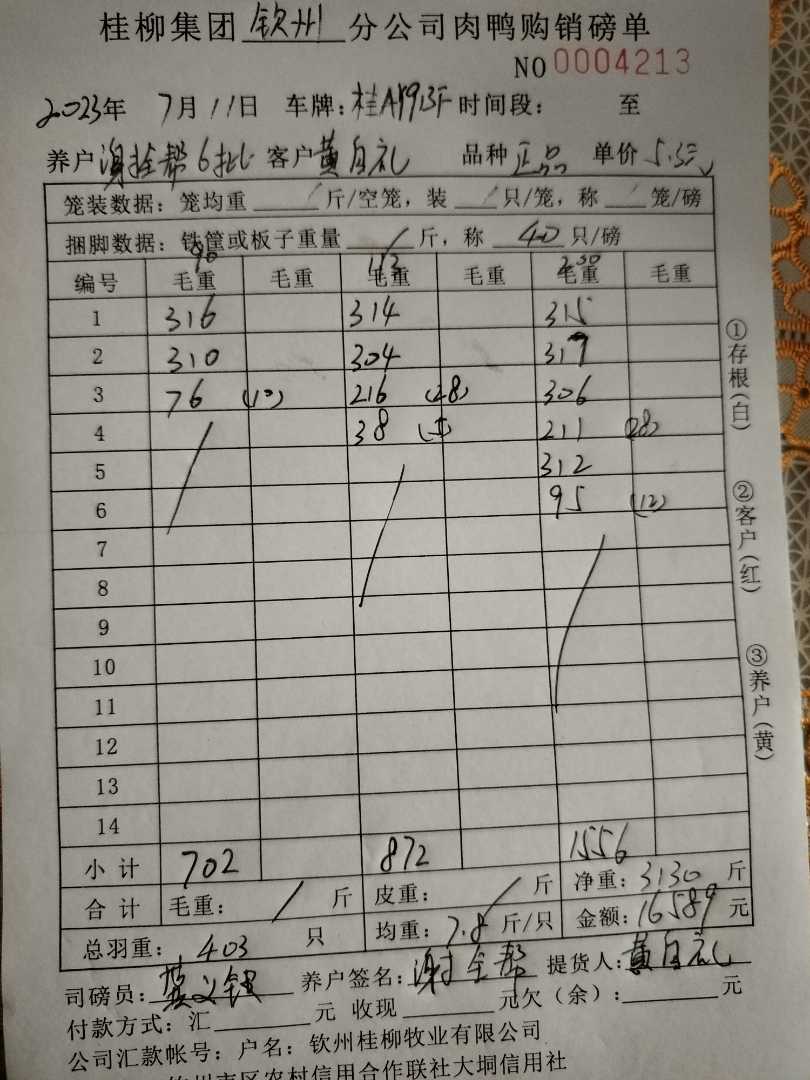 桂柳集团 钦州 分公司肉鸭购销磅单
NO 0004213
2023年 7月11日 车牌:桂 时间段: 至
养户 谢全帮6批 客户 黄自礼 品种 正品 单价 5.3元
笼装数据: 笼均重 / 斤/空笼, 装 / 只/笼, 称 / 笼/磅
捆脚数据: 铁筐或板子重量 / 斤, 称 40 只/磅
90 113 200
编号 毛重 毛重 毛重 毛重 毛重 毛重
1 316 314 315
2 310 304 317
3 76 (10) 216 (28) 306
4 38 211 (28)
5 312
6 95 (12)
7
8
9
10
11
12
13
14
小计 702 872 1556
合计 毛重: / 斤 皮重: / 斤 净重: 3130 斤
总羽重: 403 只 均重: 7.8 斤/只 金额: 16589 元
司磅员: 养户签名: 谢全帮 提货人: 黄自礼
付款方式: 汇 元 收现 元欠(余): 元
公司汇款帐号: 户名: 钦州桂柳牧业有限公司
钦州市区农村信用合作联社大垌信用社
①存根(白)
②客户(红)
③养户(黄)